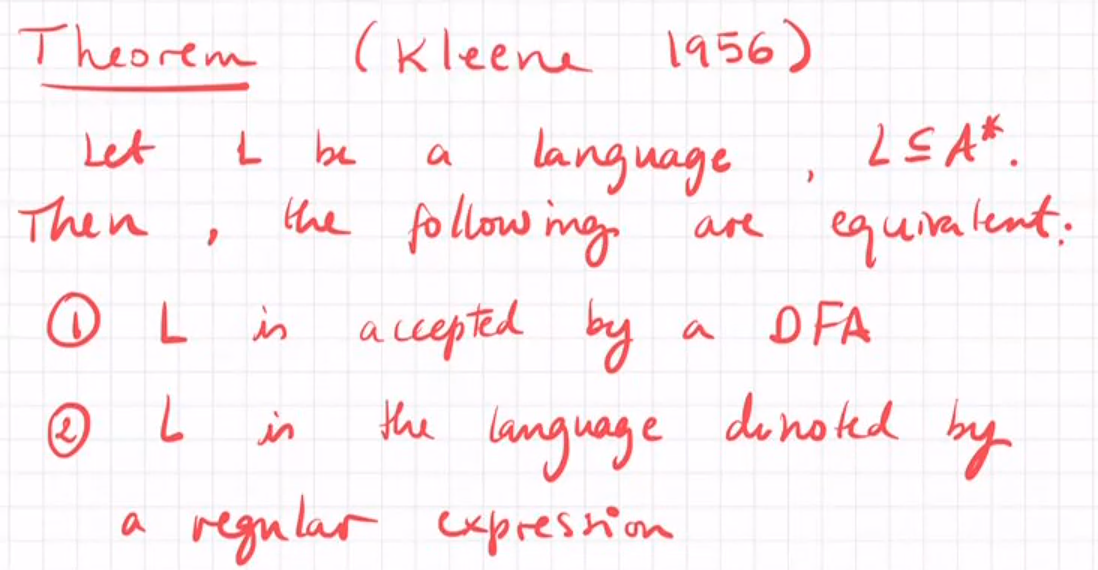 Theorem (Kleene 1956)
Let L be a language, L ⊆ A*.
Then, the following are equivalent:
① L is accepted by a DFA
② L is the language denoted by
a regular expression